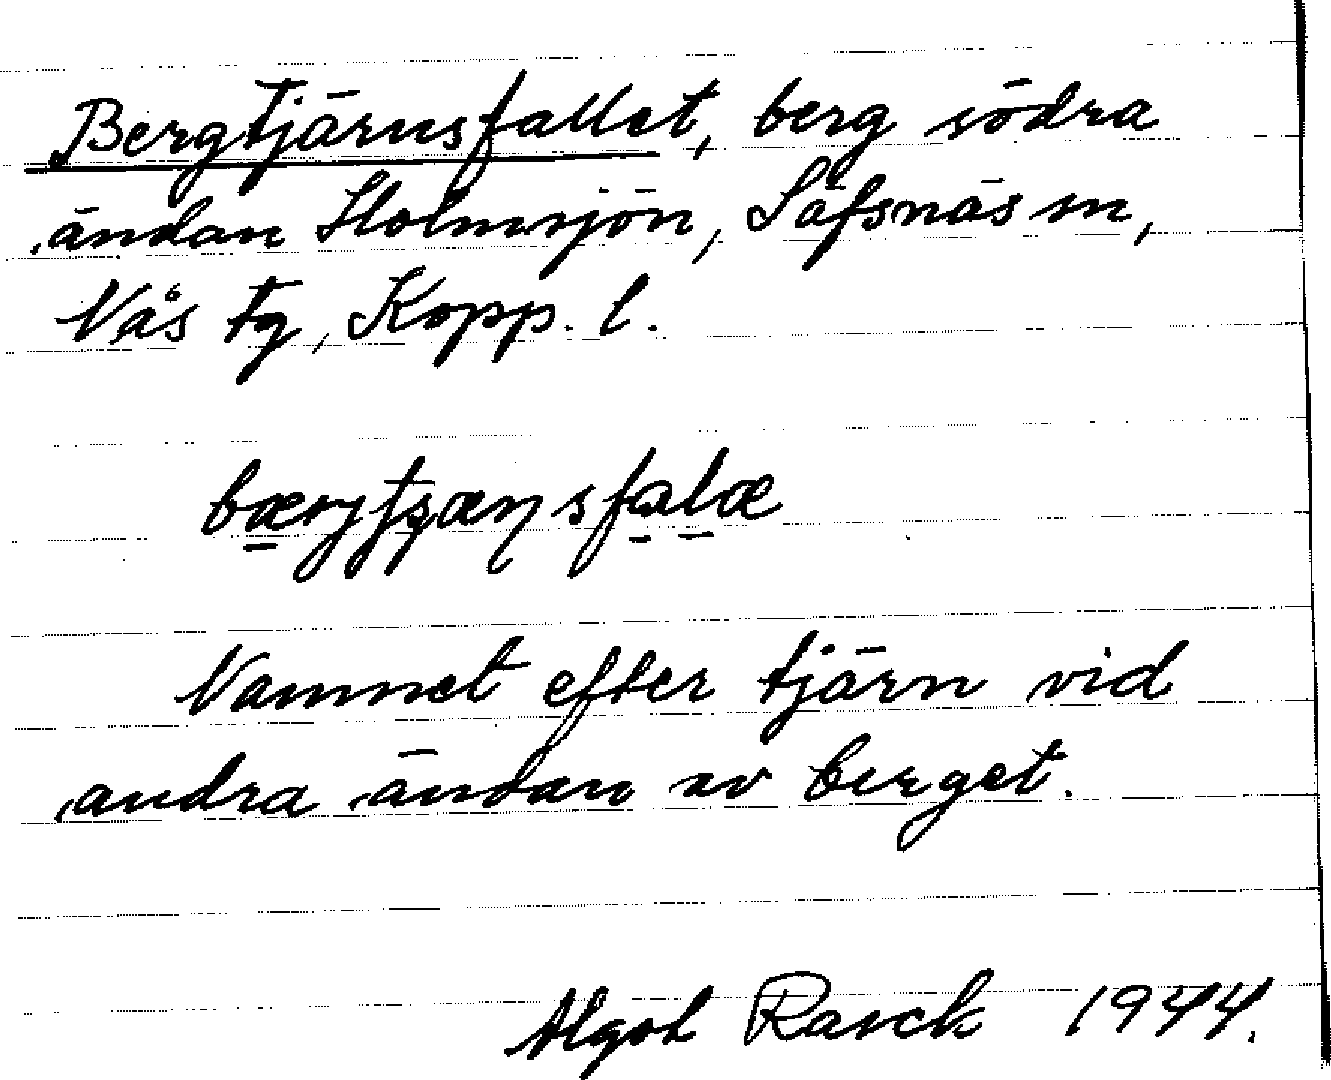 Bergtjärnsfallet, berg södra
ändan Holmsjön, Säfsnäs sn,
Nås tg, Kopp. l.
Namnet efter tjärn vid
andra ändan av berget.
Algot Rasck 1944.